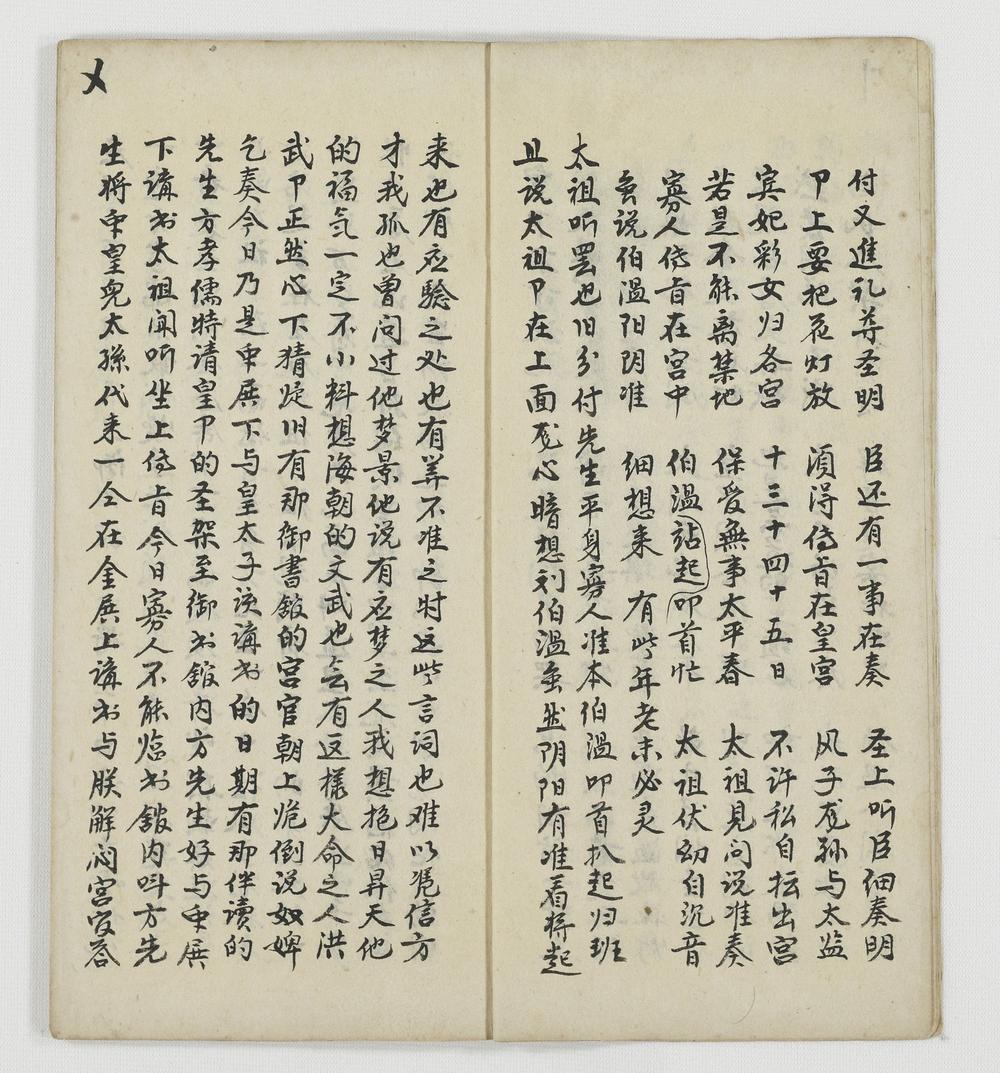 付又進礼尊圣明 臣还有一事在奏 圣上听臣细奏明
卩上要把花灯放 須得侍旨在皇宮 风子龙孙与太监
宾妃彩女归各宮 十三十四十五日 不许私自抎出宮
若是不能离禁地 保受無事太平春 太祖見问说准奏
寡人侍旨在宮中 伯温站起叩首忙 太祖伏幼自沉音
虽说伯温阳阴准 细想来 有些年老未必灵
太祖听罢也旧分付先生平身寡人准本伯温叩首扒起归班
且说太祖卩在上面龙心暗想刘伯温虽然阴阳有准着将起
来也有应验之处也有筭不准之时这些言词也难以凭信方
才我孤也曾问过他梦景他说有应梦之人我想抱日昇天他
的福气一定不小料想海朝的文武也会有这樣大命之人洪
武卩正然心下猜疑旧有那御書舘的宫官朝上跪倒说奴婢
乞奏今日乃是东展下与皇太子该講书的日期有那伴读的
先生方孝儒特请皇卩的圣架至御书舘内方先生好与东展
下講书太祖闻听坐上侍旨今日寡人不能临书舘内呌方先
生将东皇兒太孫代来一仝在金展上講书与朕解闷宮官答